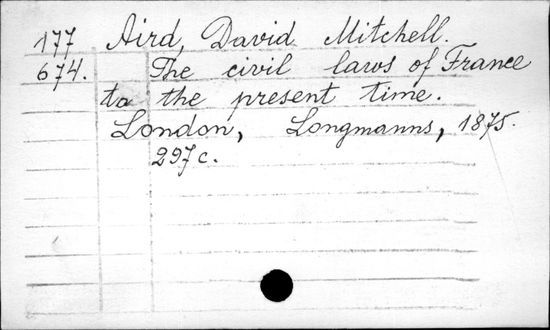 177 Aird, David Mitchell.
674. The civil laws of France
to the present time.
London, Longmanns, 1875.
297 c.